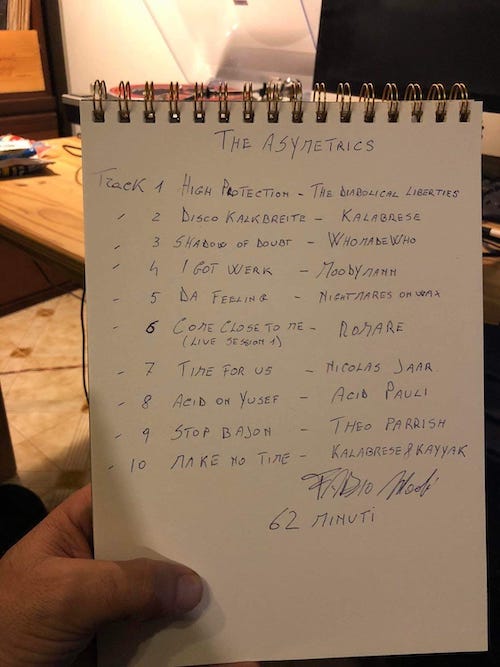 THE ASYMETRICS
TRACK 1 HIGH PROTECTION - THE DIABOLICAL LIBERTIES
" 2 DISCO KALKBREITE - KALABRESE
" 3 SHADOW OF DOUBT - WHOMADEWHO
" 4 I GOT WERK - MOODYMANN
" 5 DA FEELING - NIGHTMARES ON WAX
" 6 COME CLOSE TO ME - ROMARE
(LIVE SESSION 1)
" 7 TIME FOR US - NICOLAS JAAR
" 8 ACID ON YUSEF - ACID PAULI
" 9 STOP BAJON - THEO PARRISH
" 10 MAKE NO TIME - KALABRESE & KAYYAK
FABIO
62 MINUTI